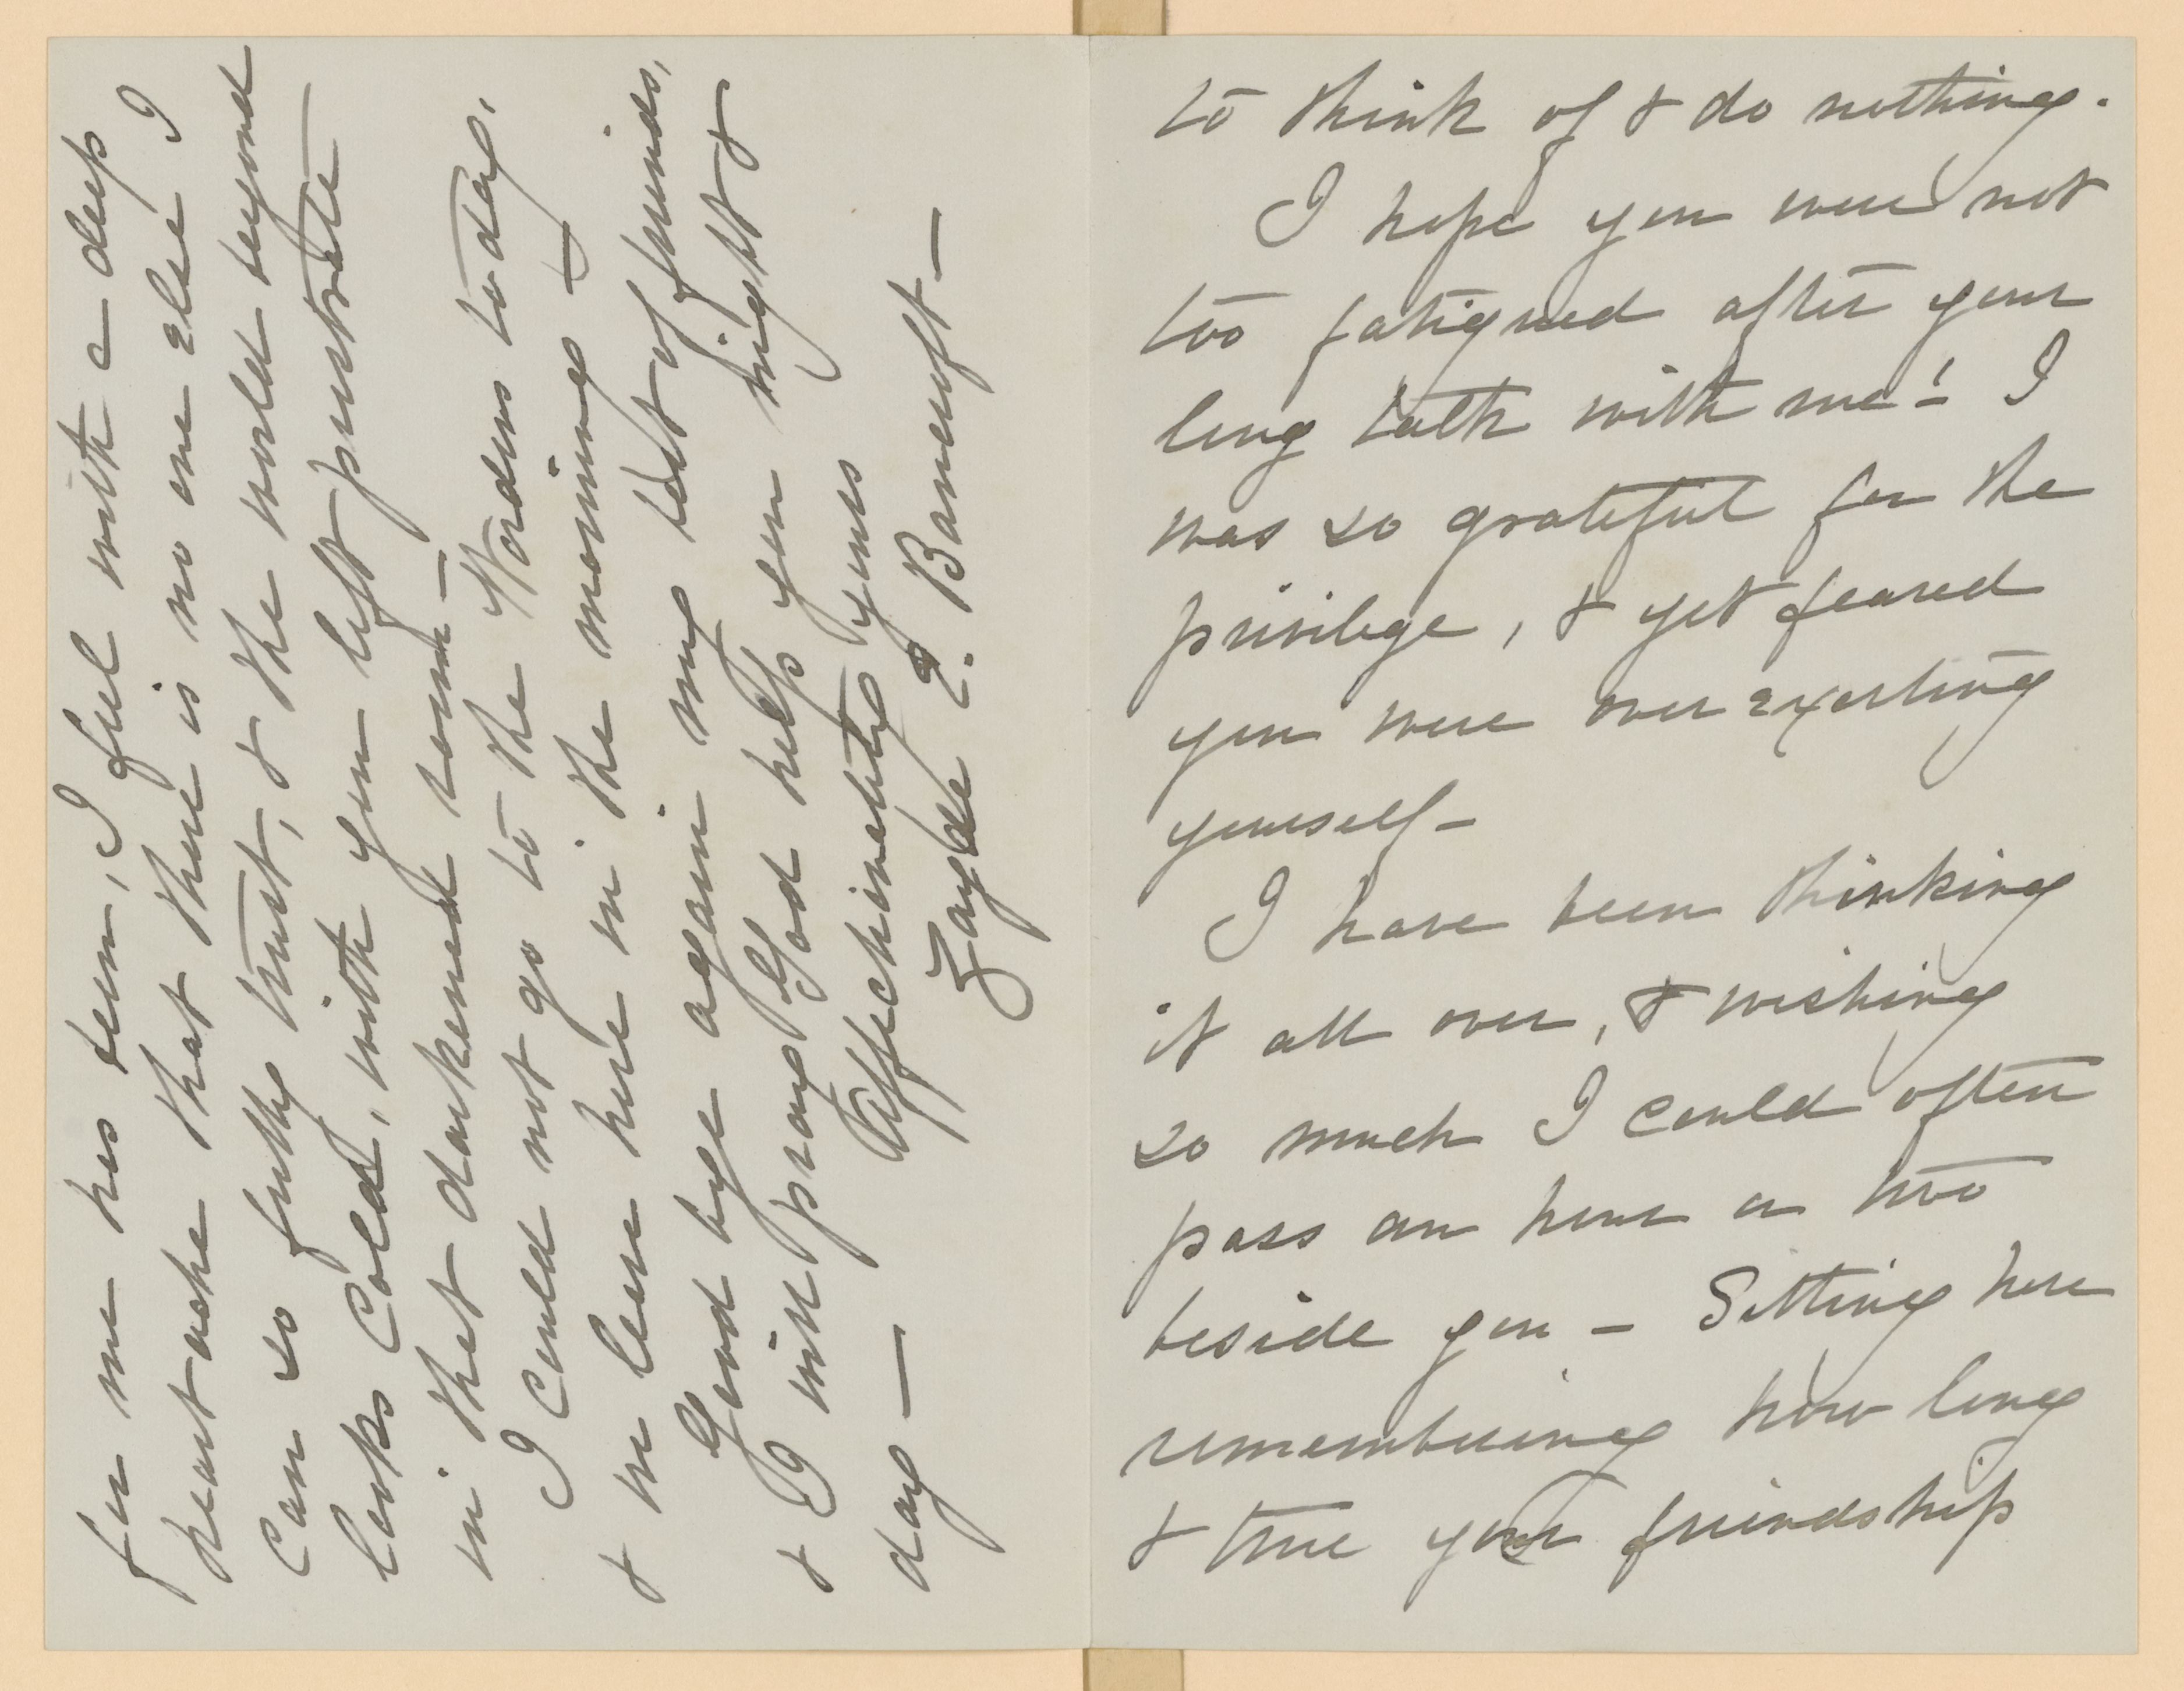 to think of & do nothing.
I hope you were not
too fatigued after your
long talk with me! I
was so grateful for the
privilege, & yet feared
you were over exerting
yourself –
I have been thinking
it all over, & wishing
so much I could often
pass an hour or two
beside you – Sitting here
remembering how long
& true your friendship
for me has been, I feel with a deep
heart ache that there is no one else I
can so fully trust, & the world beyond
looks cold, with you left prostrate
in that darkened room –
I could not go to the Wordens today,
& we leave here in the morning –
Good bye again my best of friends,
& I will pray God help you night &
day – Affectionately yours
E. Bancroft –